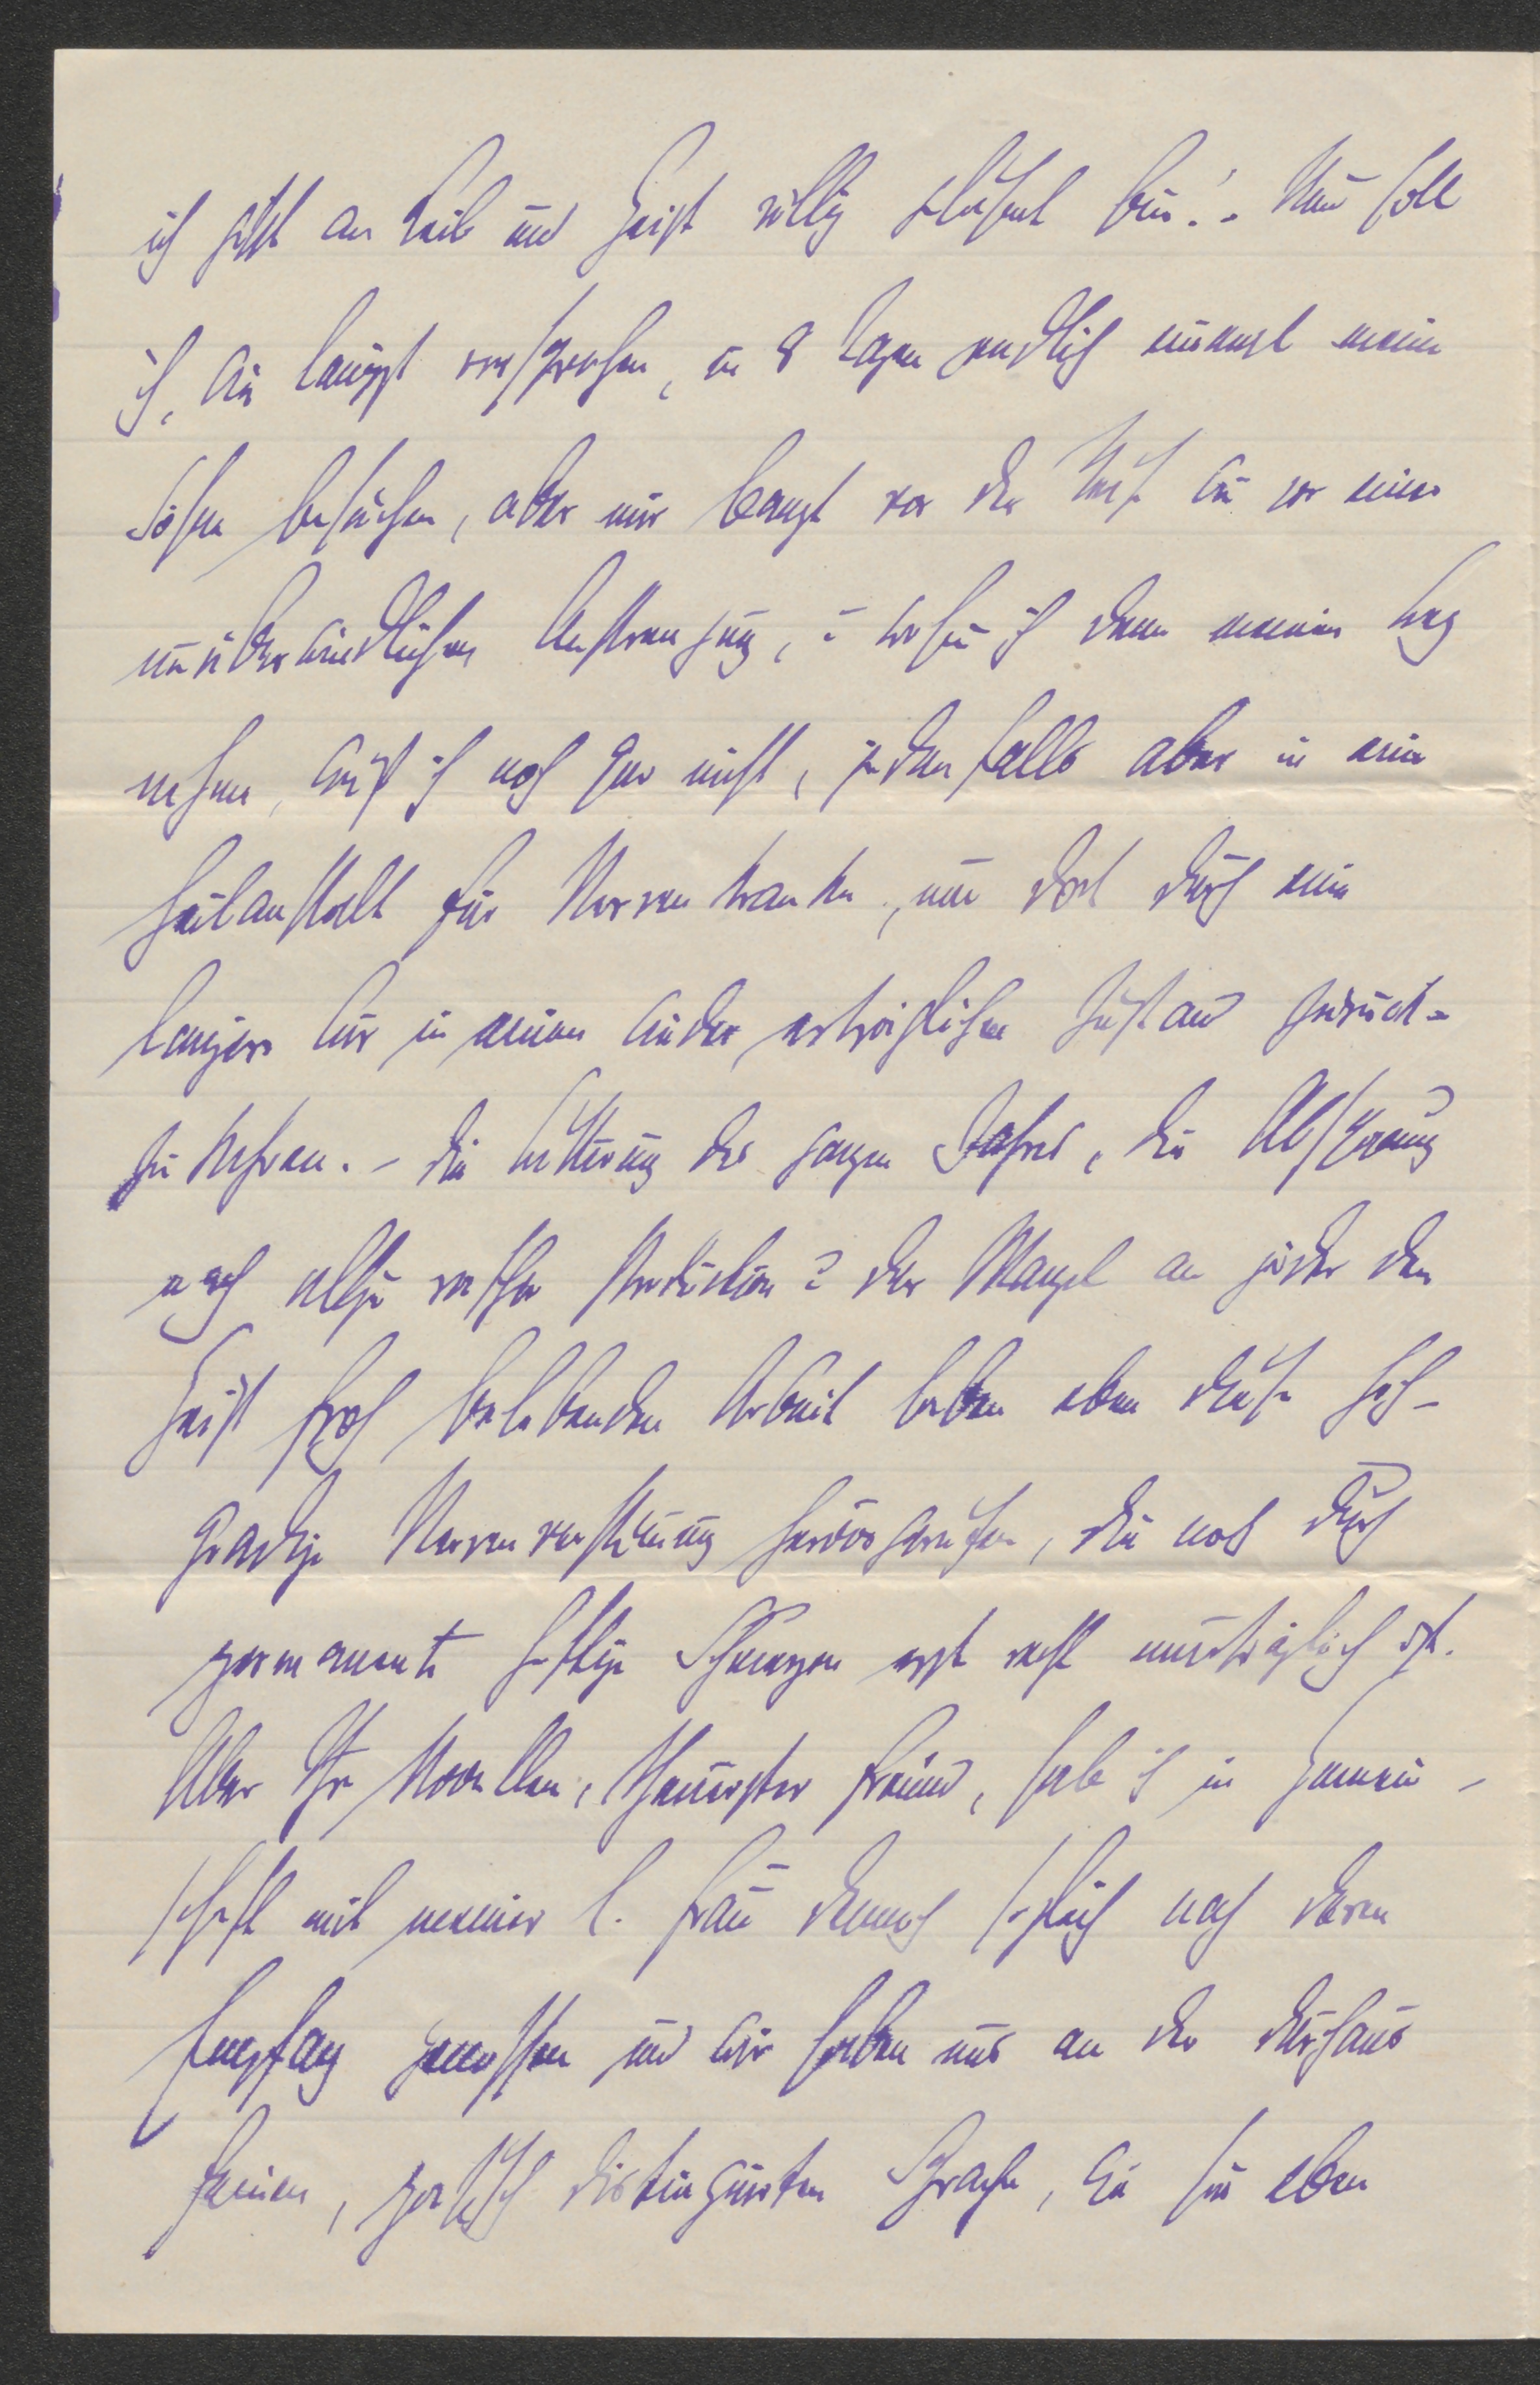 ich jetzt an Leib und Geist völlig gelähmt bin! - Nun soll
ich, wie längst versprochen, in 8 Tagen endlich einmal meine
Söhne besuchen, aber mir bangt vor der Reise wie vor einer
unüberwindlichen Anstrengung, u. wohin ich dann meinen Weg
nehme, weiß ich noch gar nicht, jedenfalls aber in eine
Heilanstalt für Nervenkranke, um dort durch eine
längere Kur in einen wieder erträglichen Zustand zurück-
zukehren. - Die Witterung des ganzen Jahres, die Abspannung
nach allzu rascher Production u. der Mangel an jeder den
Geist frisch belebenden Arbeit haben eben diese hoch-
gradige Nervenverstimmung hervorgerufen, die noch durch
permanente heftige Schmerzen erst recht unerträglich ist.
Aber Ihre Novellen, theuerster Freund, habe ich in Gemein-
schaft mit meiner l. Frau dennoch sogleich nach deren
Empfang genossen und wir haben uns an der durchaus
feinen, poetisch distinguirten Sprache, wie sie eben